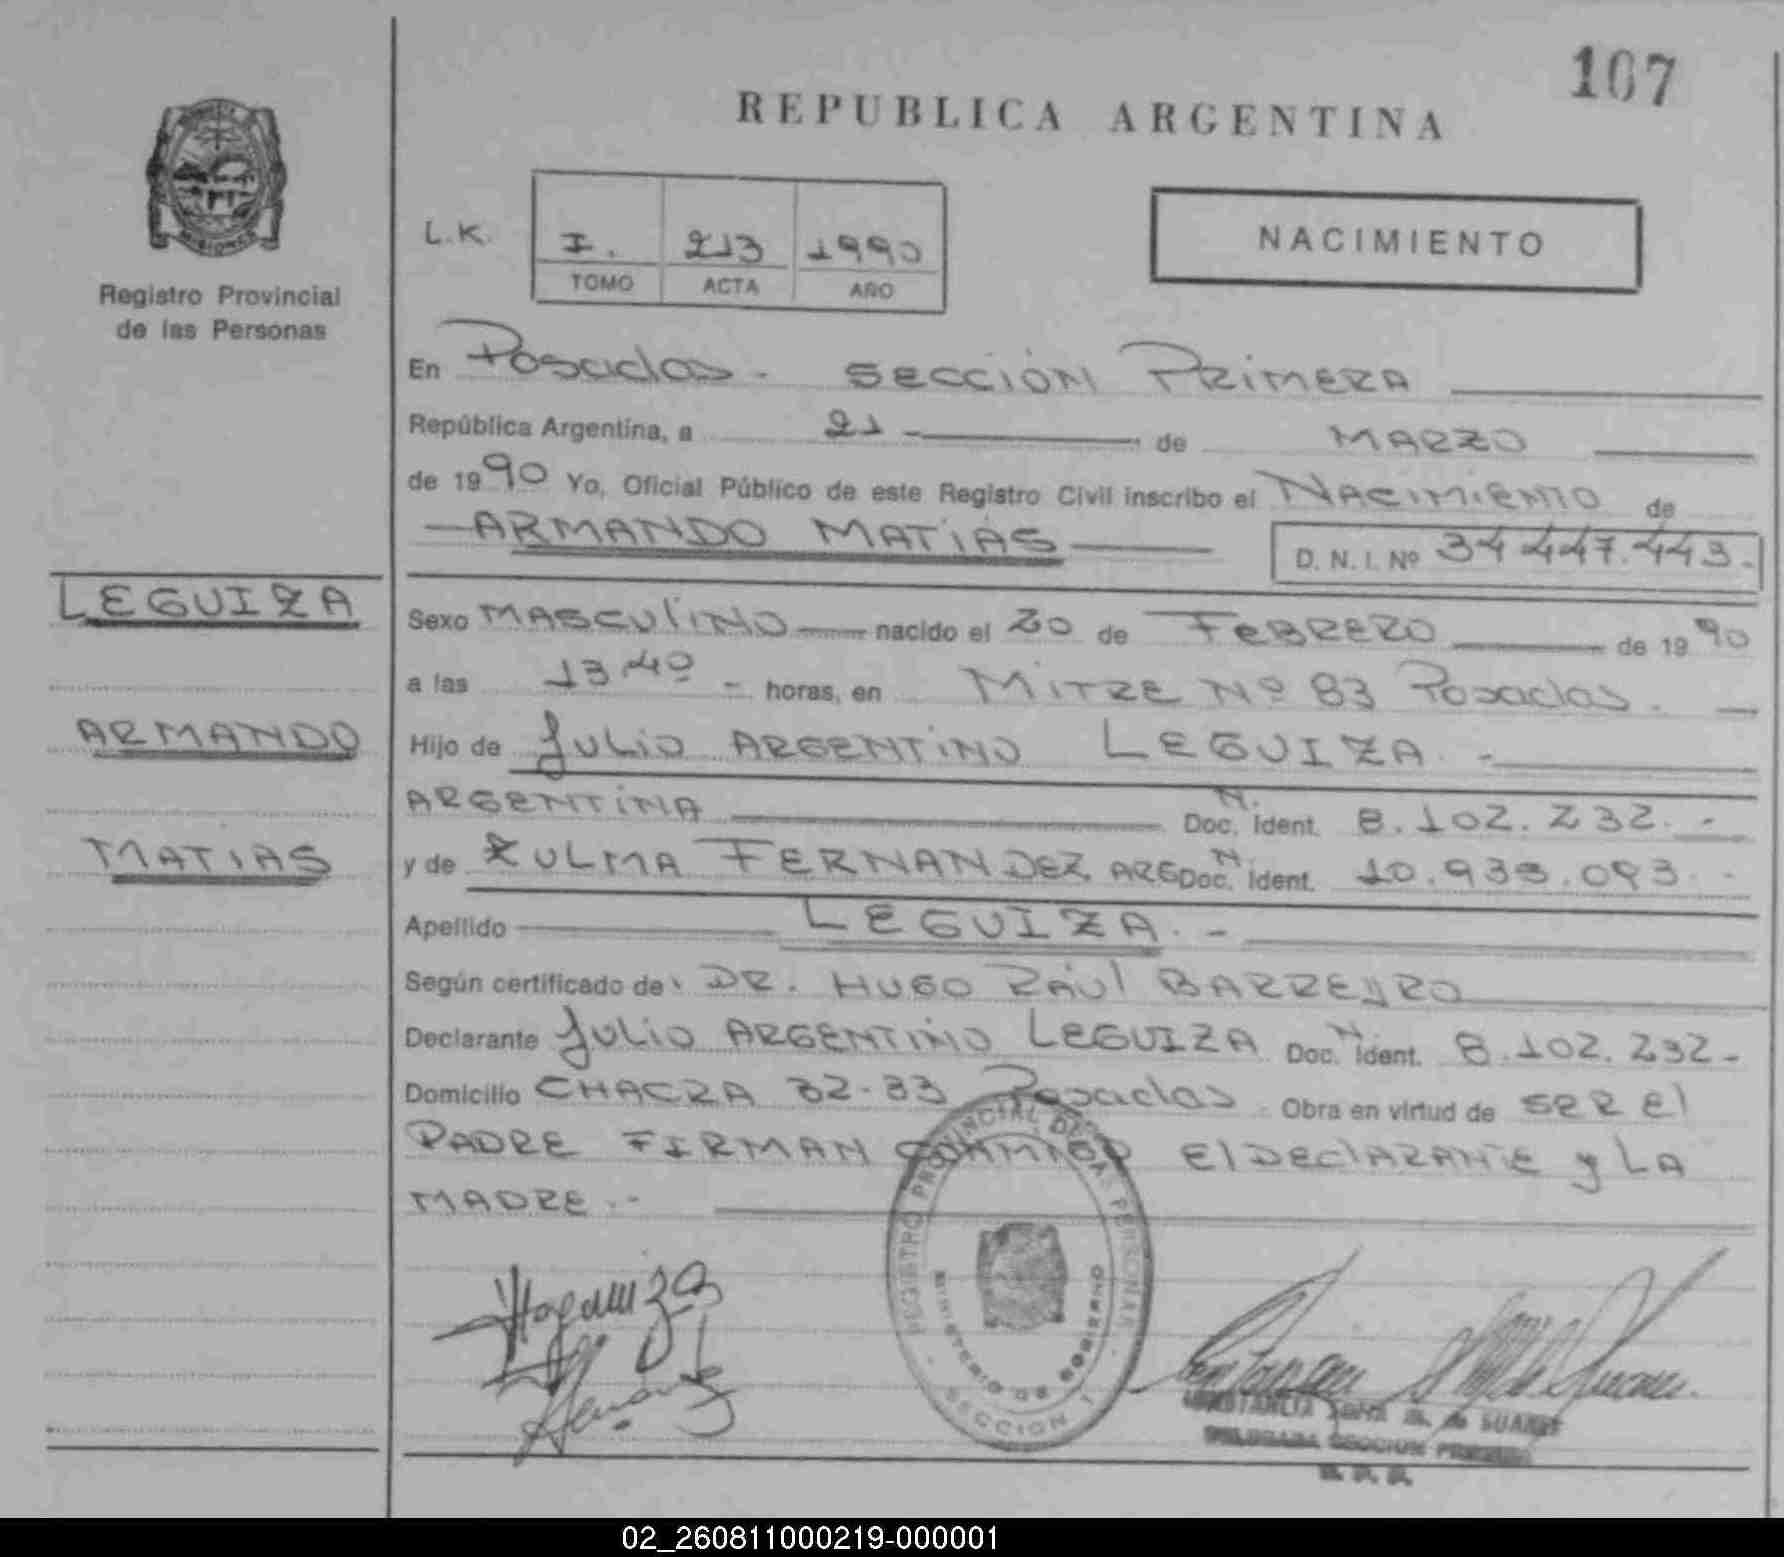 107
REPUBLICA ARGENTINA
MISIONES
Registro Provincial
de las Personas
L.K.
I. 213 1990
TOMO ACTA AÑO
NACIMIENTO
En Posadas - SECCIÓN PRIMERA
República Argentina, a 21 - de MARZO
de 1990 Yo, Oficial Público de este Registro Civil inscribo el NACIMIENTO de
ARMANDO MATIAS D. N. I. Nº 34 447.443.-
LEGUIZA
Sexo MASCULINO nacido el 20 de FEBRERO de 1990
a las 13 40 - horas, en MITRE Nº 83 Posadas. -
ARMANDO
Hijo de JULIO ARGENTINO LEGUIZA. -
ARGENTINA Doc. N. Ident. 8.102.232. -
MATIAS
y de ZULMA FERNANDEZ ARG Doc. N. Ident. 10.933.093. -
Apellido LEGUIZA. -
Según certificado de: DR. HUGO RAÚL BARREYRO
Declarante JULIO ARGENTINO LEGUIZA Doc. N. Ident. 8.102.232-
Domicilio CHACRA 32-33 Posadas. Obra en virtud de SER El
PADRE FIRMAN CONMIGO El DEClARANTE y LA
MADRE. -
REGISTRO PROVINCIAL DE LAS PERSONAS
MINISTERIO DE GOBIERNO
SECCION 1
SUAREZ
SECCION PRIMERA
02_260811000219-000001